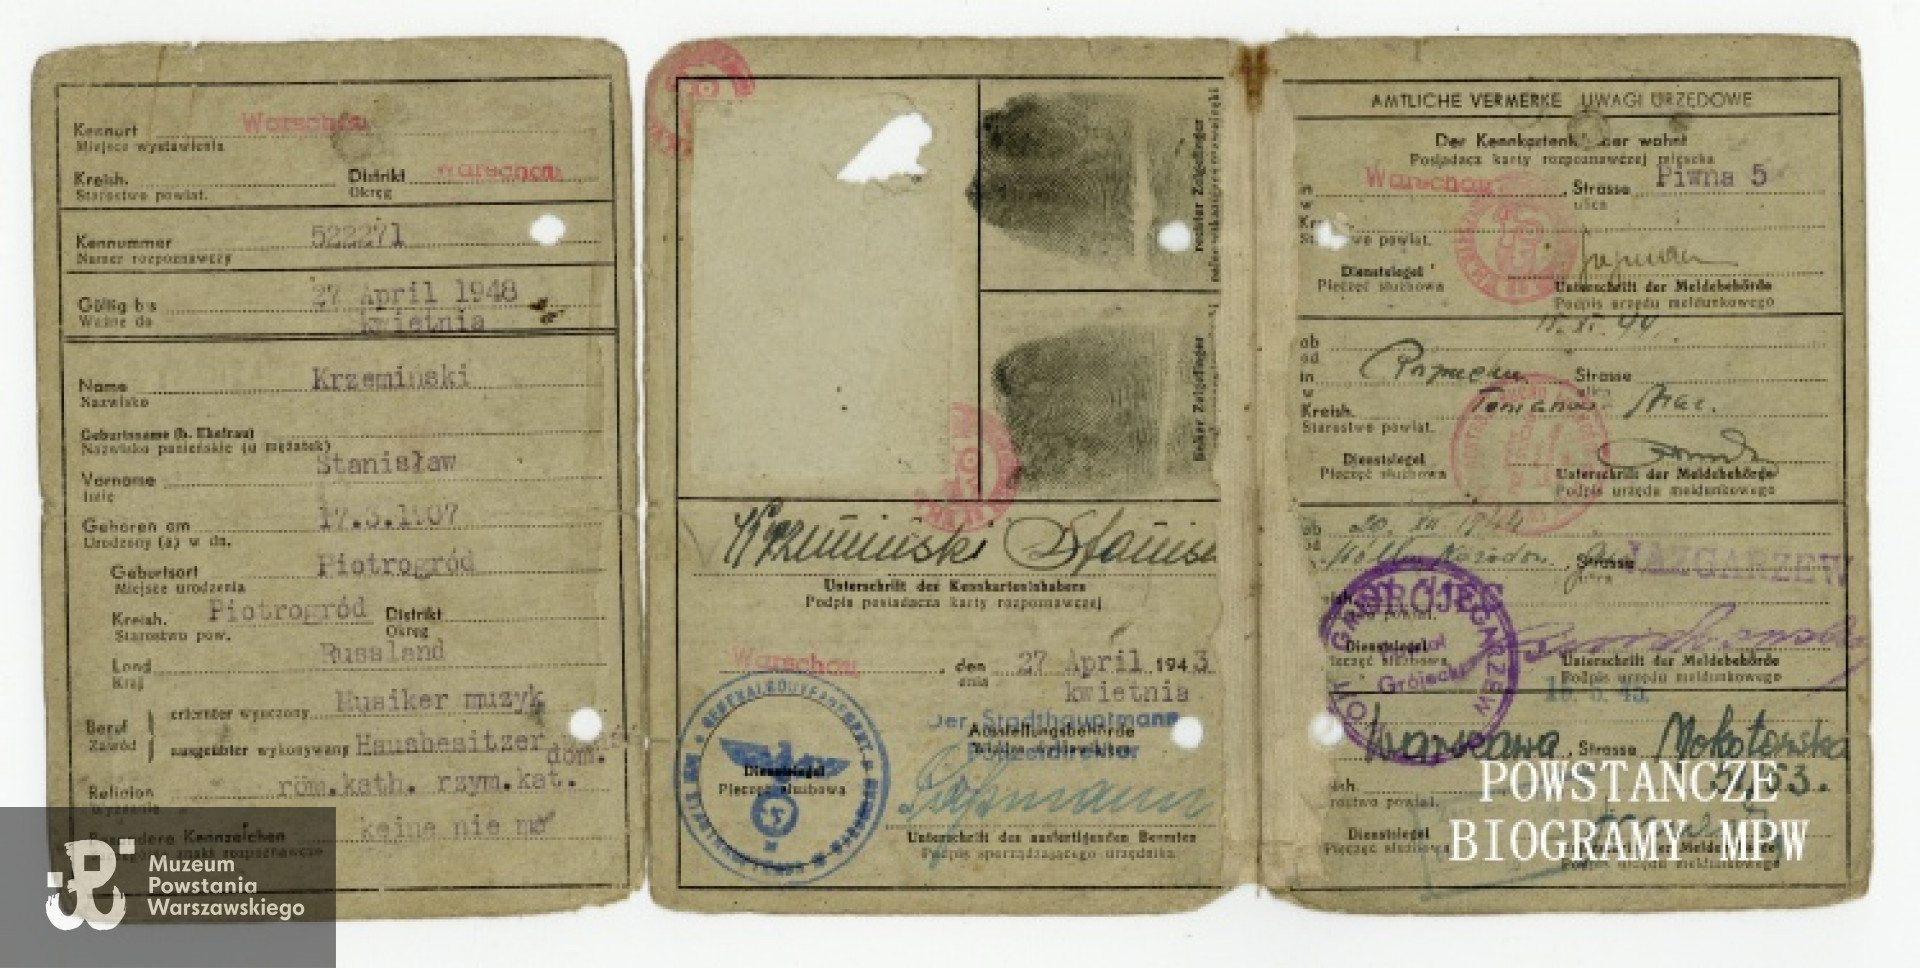 Kennort Warschau
Miejsce wystawienia
Kreish. Distrikt Warschau
Starostwo powiat. Okręg
Kennummer 522271
Numer rozpoznawczy
Gültig bis 27 April 1948
Ważne do kwietnia
Name Krzemiński
Nazwisko
Geburtsname (b. Ehefrau)
Nazwisko panieńskie (u mężatek)
Vorname Stanisław
Imię
Geboren am 17.3.1907
Urodzony (a) w dn.
Geburtsort Piotrogród
Miejsce urodzenia
Kreish. Piotrogród Distrikt
Starostwo pow. Okręg
Land Russland
Kraj
Beruf erlernter wyuczony Musiker muzyk
Zawód ausgeübter wykonywany Hausbesitzer
dom.
Religion röm.kath. rzym.kat.
Wyznanie
Besondere Kennzeichen keine nie ma
Muzeum
Powstania
Warszawskiego
rechter Zeigefinger
linker Zeigefinger
Krzemiński Stanisł
Unterschrift des Kennkarteninhabers
Podpis posiadacza karty rozpoznawczej
Warschau, den 27 April 1943
dnia kwietnia
Der Stadthauptmann
Ausstellungsbehörde
Polizeidirektor
Dienstsiegel
Pieczęć służbowa
Unterschrift des ausfertigenden Beamten
Podpis sporządzającego urzędnika
AMTLICHE VERMERKE UWAGI URZĘDOWE
Der Kennkarteninhaber wohnt
Posiadacz karty rozpoznawczej mieszka
in Warschau, Strasse Piwna 5
w ulica
Starostwo powiat.
Dienstsiegel
Pieczęć służbowa Unterschrift der Meldebehörde
Podpis urzędu meldunkowego
15. XI. 44
ab
od
in Strasse
w ulica
Kreish.
Starostwo powiat.
Dienstsiegel
Pieczęć służbowa Unterschrift der Meldebehörde
Podpis urzędu meldunkowego
ab 20. XII 1944
od
Strasse JAZGARZEW
GRÓJEC
Grójecki
Dienstsiegel
Pieczęć służbowa Unterschrift der Meldebehörde
Podpis urzędu meldunkowego
Warszawa, Strasse Mokotowska
51/53.
Dienstsiegel
Pieczęć służbowa
POWSTANCZE
BIOGRAMY MPW